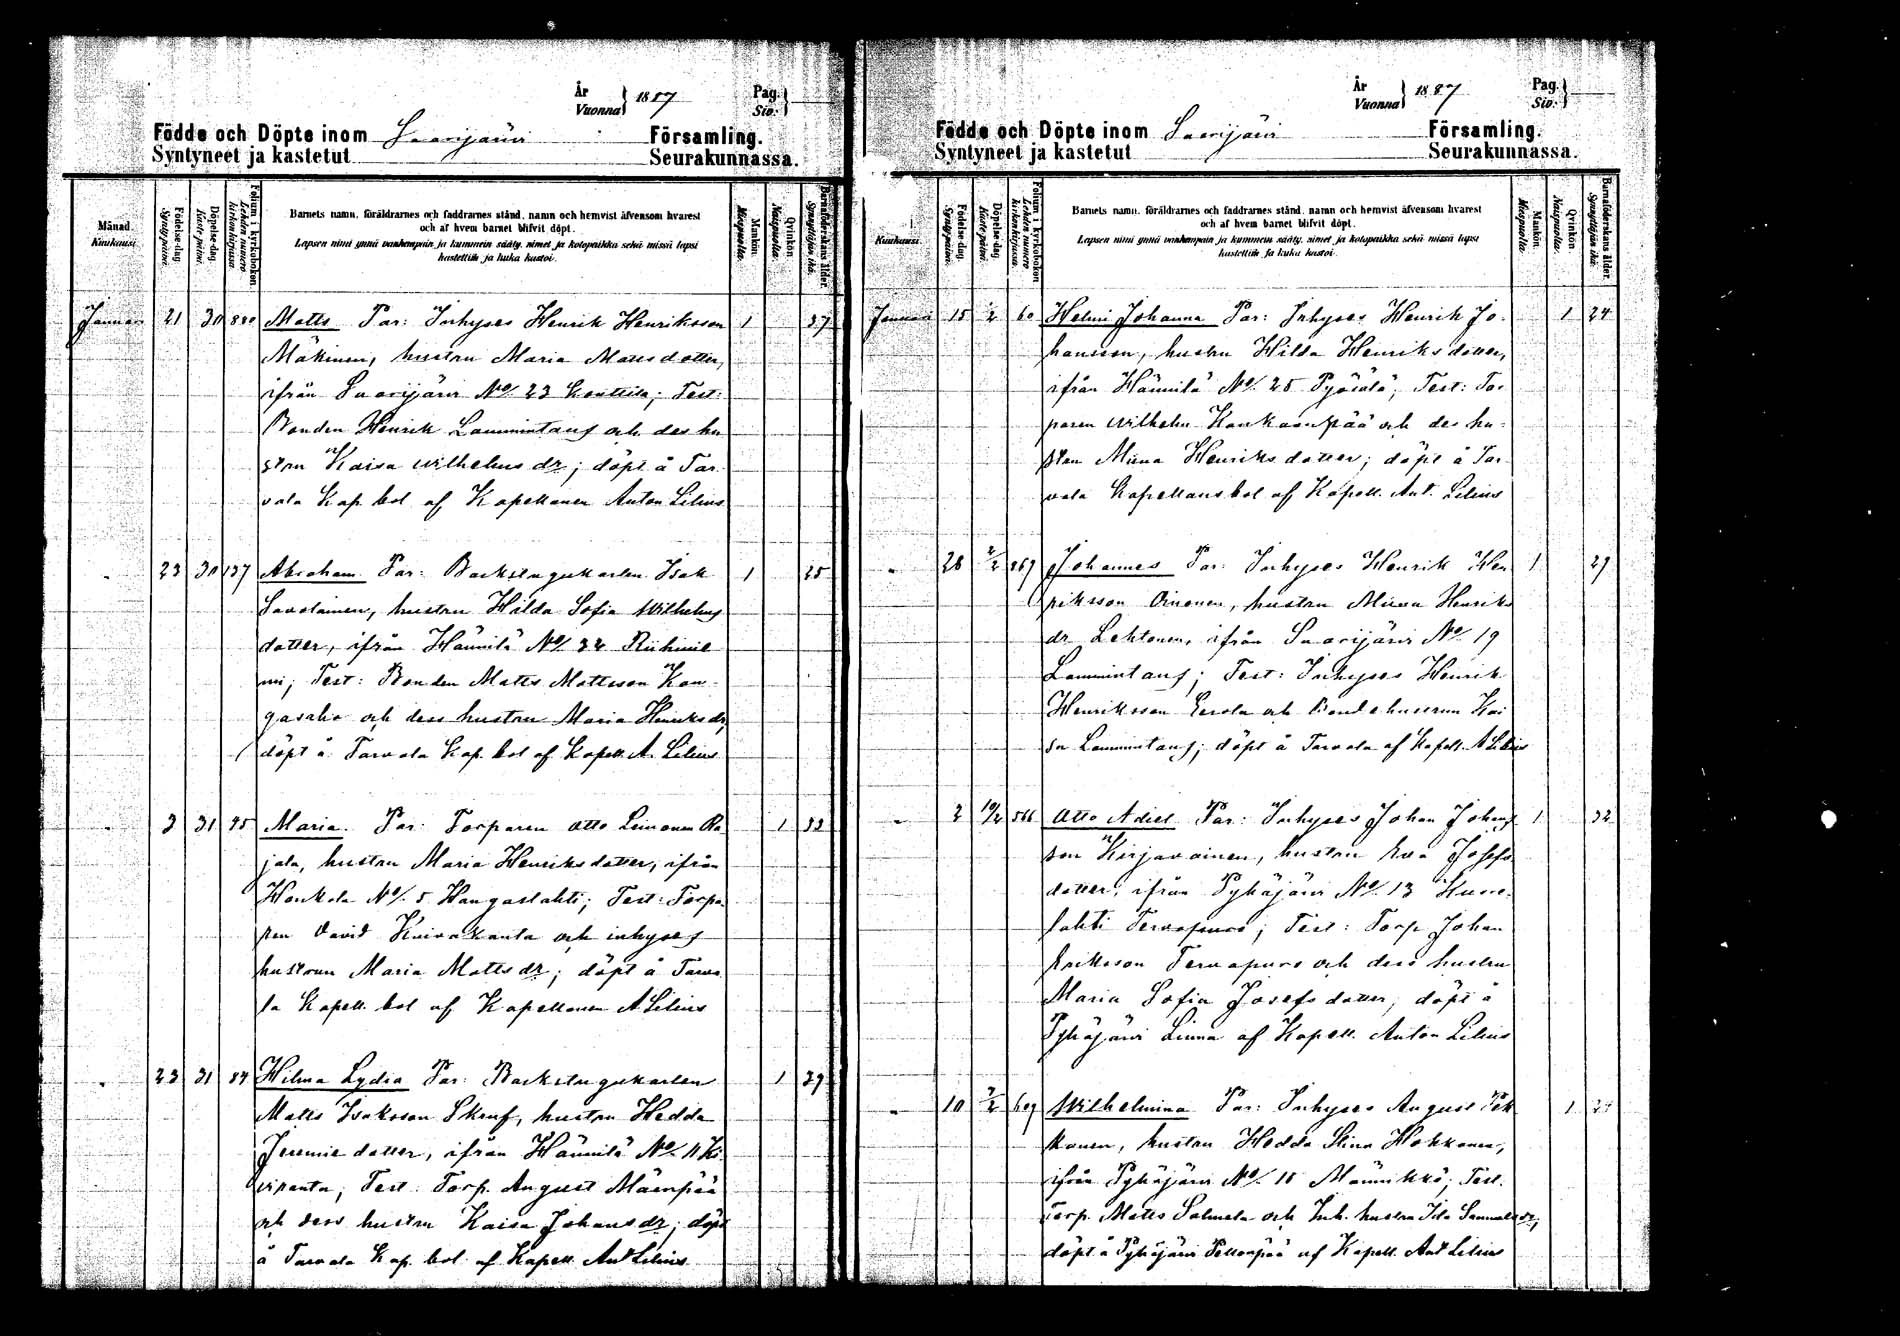 År
Vuonna } 1887
Pag.
Siv. }
Födde och Döpte inom Saarijärvi Församling.
Syntyneet ja kastetut Seurakunnassa.
Månad.
Kuukausi.
Födelse-dag.
Syntypäivä.
Döpelse-dag.
Kastepäivä.
Folium i kyrkoboken.
Lehden numero kirkonkirjassa.
Barnets namn, föräldrarnes och faddrarnes stånd, namn och hemvist äfvensom hvarest
och af hvem barnet blifvit döpt.
Lapsen nimi ynnä vanhempain ja kummein sääty, nimet ja kotopaikka sekä missä lapsi
kastettiin ja kuka kastoi.
Mankön.
Miespuolia.
Qvinkön.
Naispuolia.
Barnaföderskans ålder.
Synnyttäjän ikä.
Januari 21 30 880 Matts Par: Inhyses Henrik Henriksson 1 37
Mäkinen, hustru Maria Mattsdotter,
ifrån Saarijärvi No/ 23 Kouttila; Test:
Bonden Henrik Lammintaus och des hu
stru Kaisa Wilhelms dr; döpt å Tar
vala Kap. bol af Kapellanen Anton Lilius
23 30 137 Abraham Par: Backstugukarlen Isak 1 25
Savolainen, hustru Hilda Sofia Wilhelms
dotter, ifrån Hännilä No/ 34 Riihinie
mi; Test: Bonden Matts Mattsson Kan
gasaho och dess hustru Maria Henriksdr,
döpt å Tarvala Kap. bol af Kapell. A. Lilius
3 31 45 Maria. Par: Torparen Otto Leinonen Ra 1 33
jala, hustru Maria Henriksdotter, ifrån
Honkola No/ 5 Hangaslahti; Test: Torpa
ren David Kuivakanta och inhyses
hustrun Maria Mattsdr; döpt å Tarva
la Kapell. bol af Kapellanen A Lilius
23 31 84 Hilma Lydia Par: Backstugukarlen 1 39
Matts Isaksson Skruf, hustru Hedda
Jeremiedotter, ifrån Hännilä No/ 11 Ki
viranta; Test: Torp. August Mäenpää
och dess hustru Kaisa Johansdr; döpt
å Tarvala Kap. bol af Kapell Ant Lilius
År
Vuonna } 1887
Pag.
Siv. }
Födde och Döpte inom Saarijärvi Församling.
Syntyneet ja kastetut Seurakunnassa.
Kuukausi.
Födelse-dag.
Syntypäivä.
Döpelse-dag.
Kastepäivä.
Folium i kyrkoboken.
Lehden numero kirkonkirjassa.
Barnets namn, föräldrarnes och faddrarnes stånd, namn och hemvist äfvensom hvarest
och af hvem barnet blifvit döpt.
Lapsen nimi ynnä vanhempain ja kummein sääty, nimet ja kotopaikka sekä missä lapsi
kastettiin ja kuka kastoi.
Mankön.
Miespuolia.
Qvinkön.
Naispuolia.
Barnaföderskans ålder.
Synnyttäjän ikä.
Januari 15 1/2 60 Helmi Johanna Par: Inhyses Henrik Jo- 1 24
hansson, hustru Hilda Henriksdotter,
ifrån Hännilä No/ 25 Pyöälä; Test: Tor
paren Wilhelm Kankaanpää och des hu-
stru Miina Henriksdotter; döpt å Tar
vala Kapellansbol af Kapell. Ant. Lilius
28 2/2 269 Johannes Par: Inhyses Henrik Hen 1 29
riksson Oinonen, hustru Miina Henriks
dr Lehtonen, ifrån Saarijärvi No/ 19
Lammintaus; Test: Inhyses Henrik
Henriksson Eerola och Bondehustrun Kai
sa Lammintaus; döpt å Tarvala af Kapell. A Lilius
2 10/2 566 Otto Adiel Par: Inhyses Johan Johans 1 32
son Kirjavainen, hustru Eva Josefs
dotter; ifrån Pyhäjärvi No/ 13
lahti Tervapuro; Test: Torp Johan
Eriksson Tervapuro och dess hustru
Maria Sofia Josefsdotter; döpt å
Pyhäjärvi Linna af Kapell. Anton Lilius
10 7/2 609 Wilhelmina Par: Inhyses August Pek 1 24
konen, hustru Hedda Stina Hokkanen,
ifrån Pyhäjärvi No/ 18 Männikkö; Test.
Torp. Matts Salmela och Inh. hustru Ida Samuelsdr,
döpt å Pyhäjärvi Pellonpää af Kapell. Ant Lilius